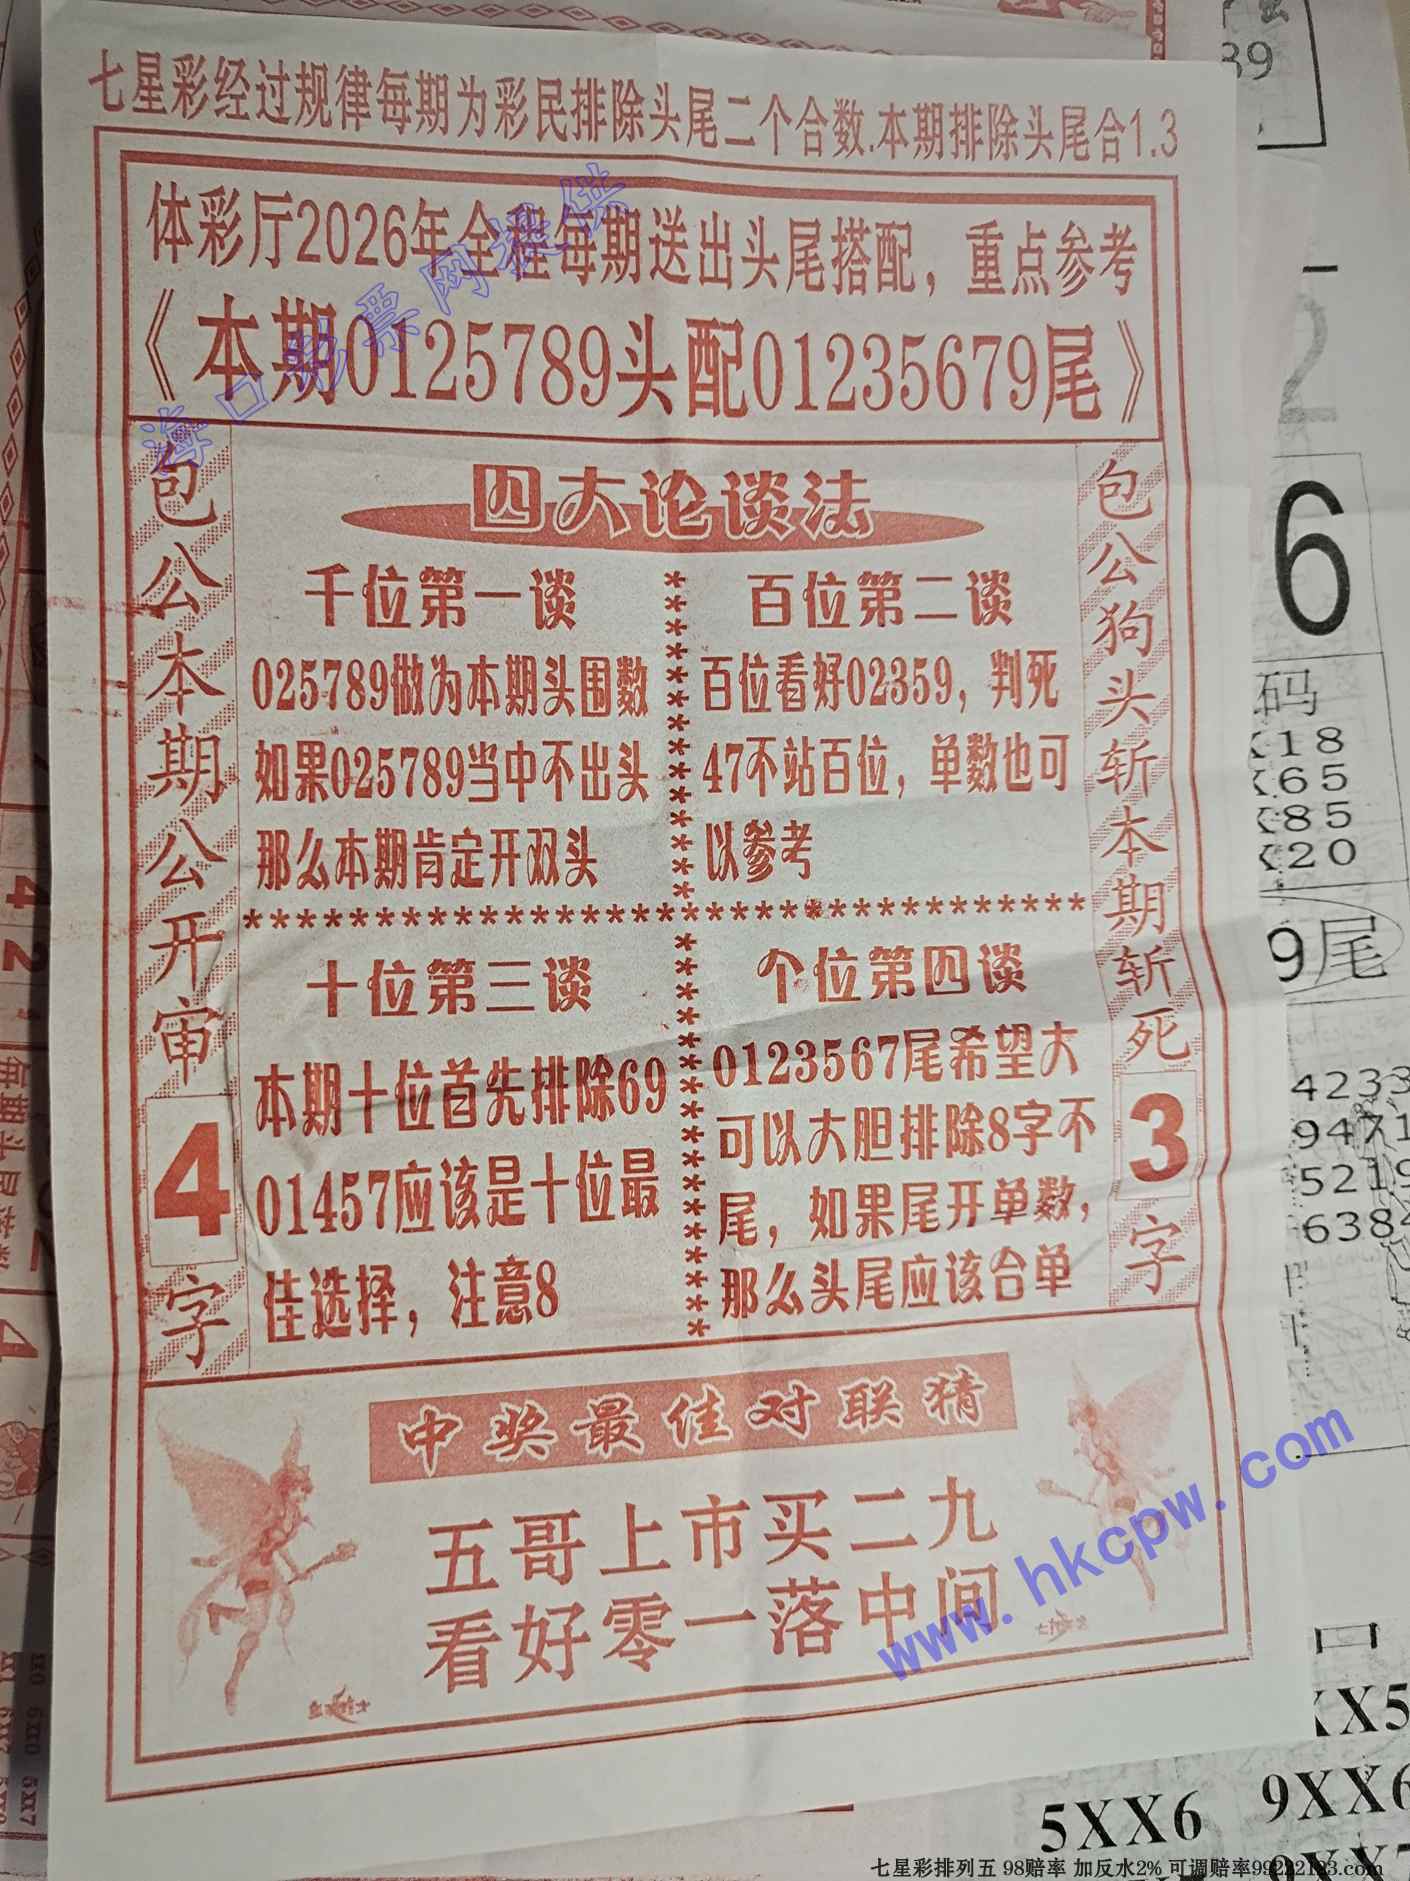 七星彩经过规律每期为彩民排除头尾二个合数.本期排除头尾合1.3
体彩厅2026年全程每期送出头尾搭配，重点参考
《本期0125789头配01235679尾》
海口彩票网提供
包公本期公开审4字
四大论谈法
千位第一谈
025789做为本期头围数
如果025789当中不出头
那么本期肯定开双头
百位第二谈
百位看好02359，判死
47不站百位，单数也可
以参考
十位第三谈
本期十位首先排除69
01457应该是十位最
佳选择，注意8
个位第四谈
0123567尾希望大
可以大胆排除8字不
尾，如果尾开单数，
那么头尾应该合单
包公狗头斩本期斩死3字
中奖最佳对联猜
五哥上市买二九
看好零一落中间
www.hkcpw.com
39
2
6
码
X18
X65
X85
X20
9尾
4233
9471
5219
6384
XX5
5XX6
9XX6
9XX7
七星彩排列五 98赔率 加反水2% 可调赔率99222123.com